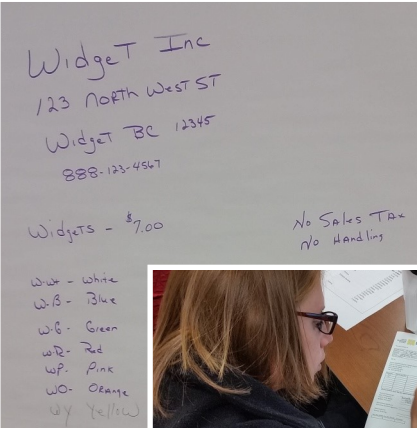 Widget Inc
123 North West ST
Widget BC 12345
888-123-4567
Widgets - $7.00
No Sales Tax
No Handling
W-Wt - White
W-B - Blue
W-G - Green
W-R - Red
WP - Pink
WO - Orange
WY Yellow